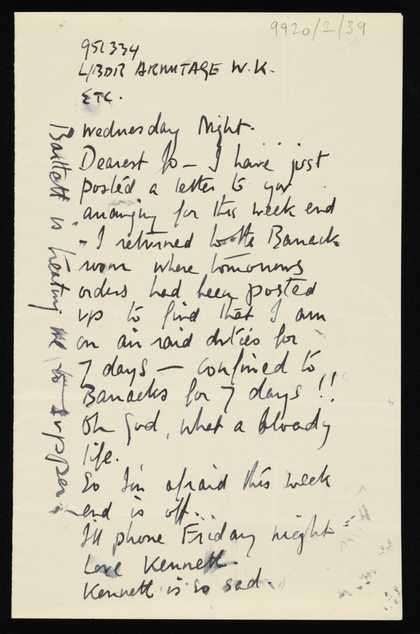 9920/2/39
951334
L/BDR ARMITAGE W.K.
ETC.
Wednesday Night.
Dearest Jo - I have just
posted a letter to you
arranging for this week end
- I returned to the Barrack
room where tomorrows
orders had been posted
up to find that I am
on air raid duties for
7 days - confined to
Barracks for 7 days!!
Oh God, what a bloody
life.
So I'm afraid this week
end is off..
I'll phone Friday night
Love Kenneth.
Kenneth is so sad.
Bartlett is treating me to supper.